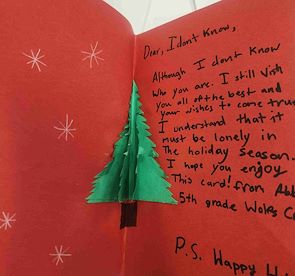 Dear, I dont Know,
Although I dont Know
Who you are. I still Wish
you all of the best and
your wishes to come true
I understand that it
must be lonely in
The holiday season.
I hope you enjoy
This card! from
5th grade
P.S. Happy